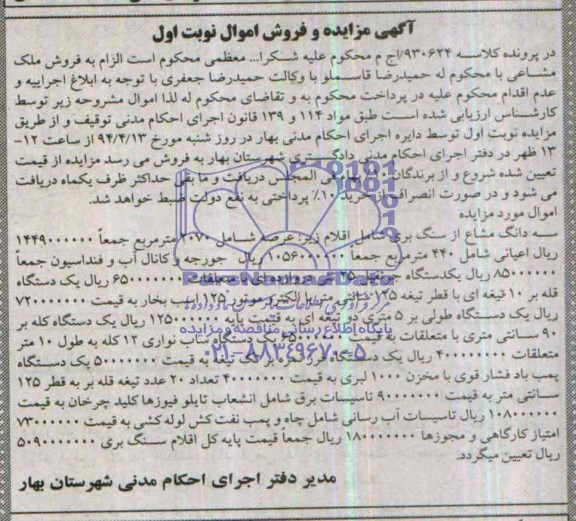 آگهی مزایده و فروش اموال نوبت اول
در پرونده کلاسه ۹۳۰۶۲۴/اج م محکوم علیه شکرا... معظمی محکوم است الزام به فروش ملک
مشاعی با محکوم له حمیدرضا قاسملو با وکالت حمیدرضا جعفری با توجه به ابلاغ اجراییه و
عدم اقدام محکوم علیه در پرداخت محکوم به و تقاضای محکوم له لذا اموال مشروحه زیر توسط
کارشناس ارزیابی شده است طبق مواد ۱۱۴ و ۱۳۹ قانون اجرای احکام مدنی توقیف و از طریق
مزایده نوبت اول توسط دایره اجرای احکام مدنی بهار در روز شنبه مورخ ۹۴/۴/۱۳ از ساعت ۱۲-
۱۳ ظهر در دفتر اجرای احکام مدنی دادگستری شهرستان بهار به فروش می رسد مزایده از قیمت
تعیین شده شروع و از برندگان ۱۰٪ بها فی المجلس دریافت و ما بقی حداکثر ظرف یکماه دریافت
می شود و در صورت انصراف از خرید ۱۰٪ پرداختی به نفع دولت ضبط خواهد شد.
اموال مورد مزایده
سه دانگ مشاع از سنگ بری شامل اقلام زیر: عرصه شامل ۲۰۷۰ مترمربع جمعاً ۱۴۴۹۰۰۰۰۰۰
ریال اعیانی شامل ۴۴۰ مترمربع جمعا ۱۰۵۶۰۰۰۰۰۰ ریال جورجه و کانال آب و فنداسیون جمعاً
۸۵۰۰۰۰۰۰ ریال یکدستگاه جرثقیل ۲۵ تنی دروازه ای با متعلقات ۶۵۰۰۰۰۰۰۰ ریال یک دستگاه
قله بر ۱۰ تیغه ای با قطر تیغه ۱۲۵ سانتی متر با الکتروموتور ۱۲۵ اسب بخار به قیمت ۷۲۰۰۰۰۰۰۰
ریال یک دستگاه طولی بر ۵ متری دو تیغه ای به قیمت ۱۲۵۰۰۰۰۰۰ ریال یک دستگاه کله بر
۹۰ سانتی متری با متعلقات به قیمت ۶۵۰۰۰۰۰۰ یک دستگاه ساب نواری ۱۲ کله به طول ۱۰ متر
متعلقات ۴۰۰۰۰۰۰۰۰ ریال یک دستگاه فرز نمره بر تک تیغه به قیمت ۵۰۰۰۰۰۰۰ یک دستگاه
پمپ باد فشار قوی با مخزن ۱۰۰۰ لیری به قیمت ۴۰۰۰۰۰۰۰ تعداد ۲۰ عدد تیغه قله بر به قطر ۱۲۵
سانتی متر به قیمت ۹۰۰۰۰۰۰۰ تاسیسات برق شامل انشعاب تابلو فیوزها کلید چرخان به قیمت
۱۰۸۰۰۰۰۰۰ ریال تاسیسات آب رسانی شامل چاه و پمپ نفت کش لوله کشی به قیمت ۷۳۰۰۰۰۰۰
امتیاز کارگاهی و مجوزها ۱۸۰۰۰۰۰۰۰ ریال جمعاً قیمت پایه کل اقلام سنگ بری ۵۰۹۰۰۰۰۰۰۰
ریال تعیین میگردد.
مدیر دفتر اجرای احکام مدنی شهرستان بهار
ParsNamadData
پایگاه اطلاع رسانی مناقصه و مزایده
۰۲۱-۸۸۳۴۹۶۷۰-۵